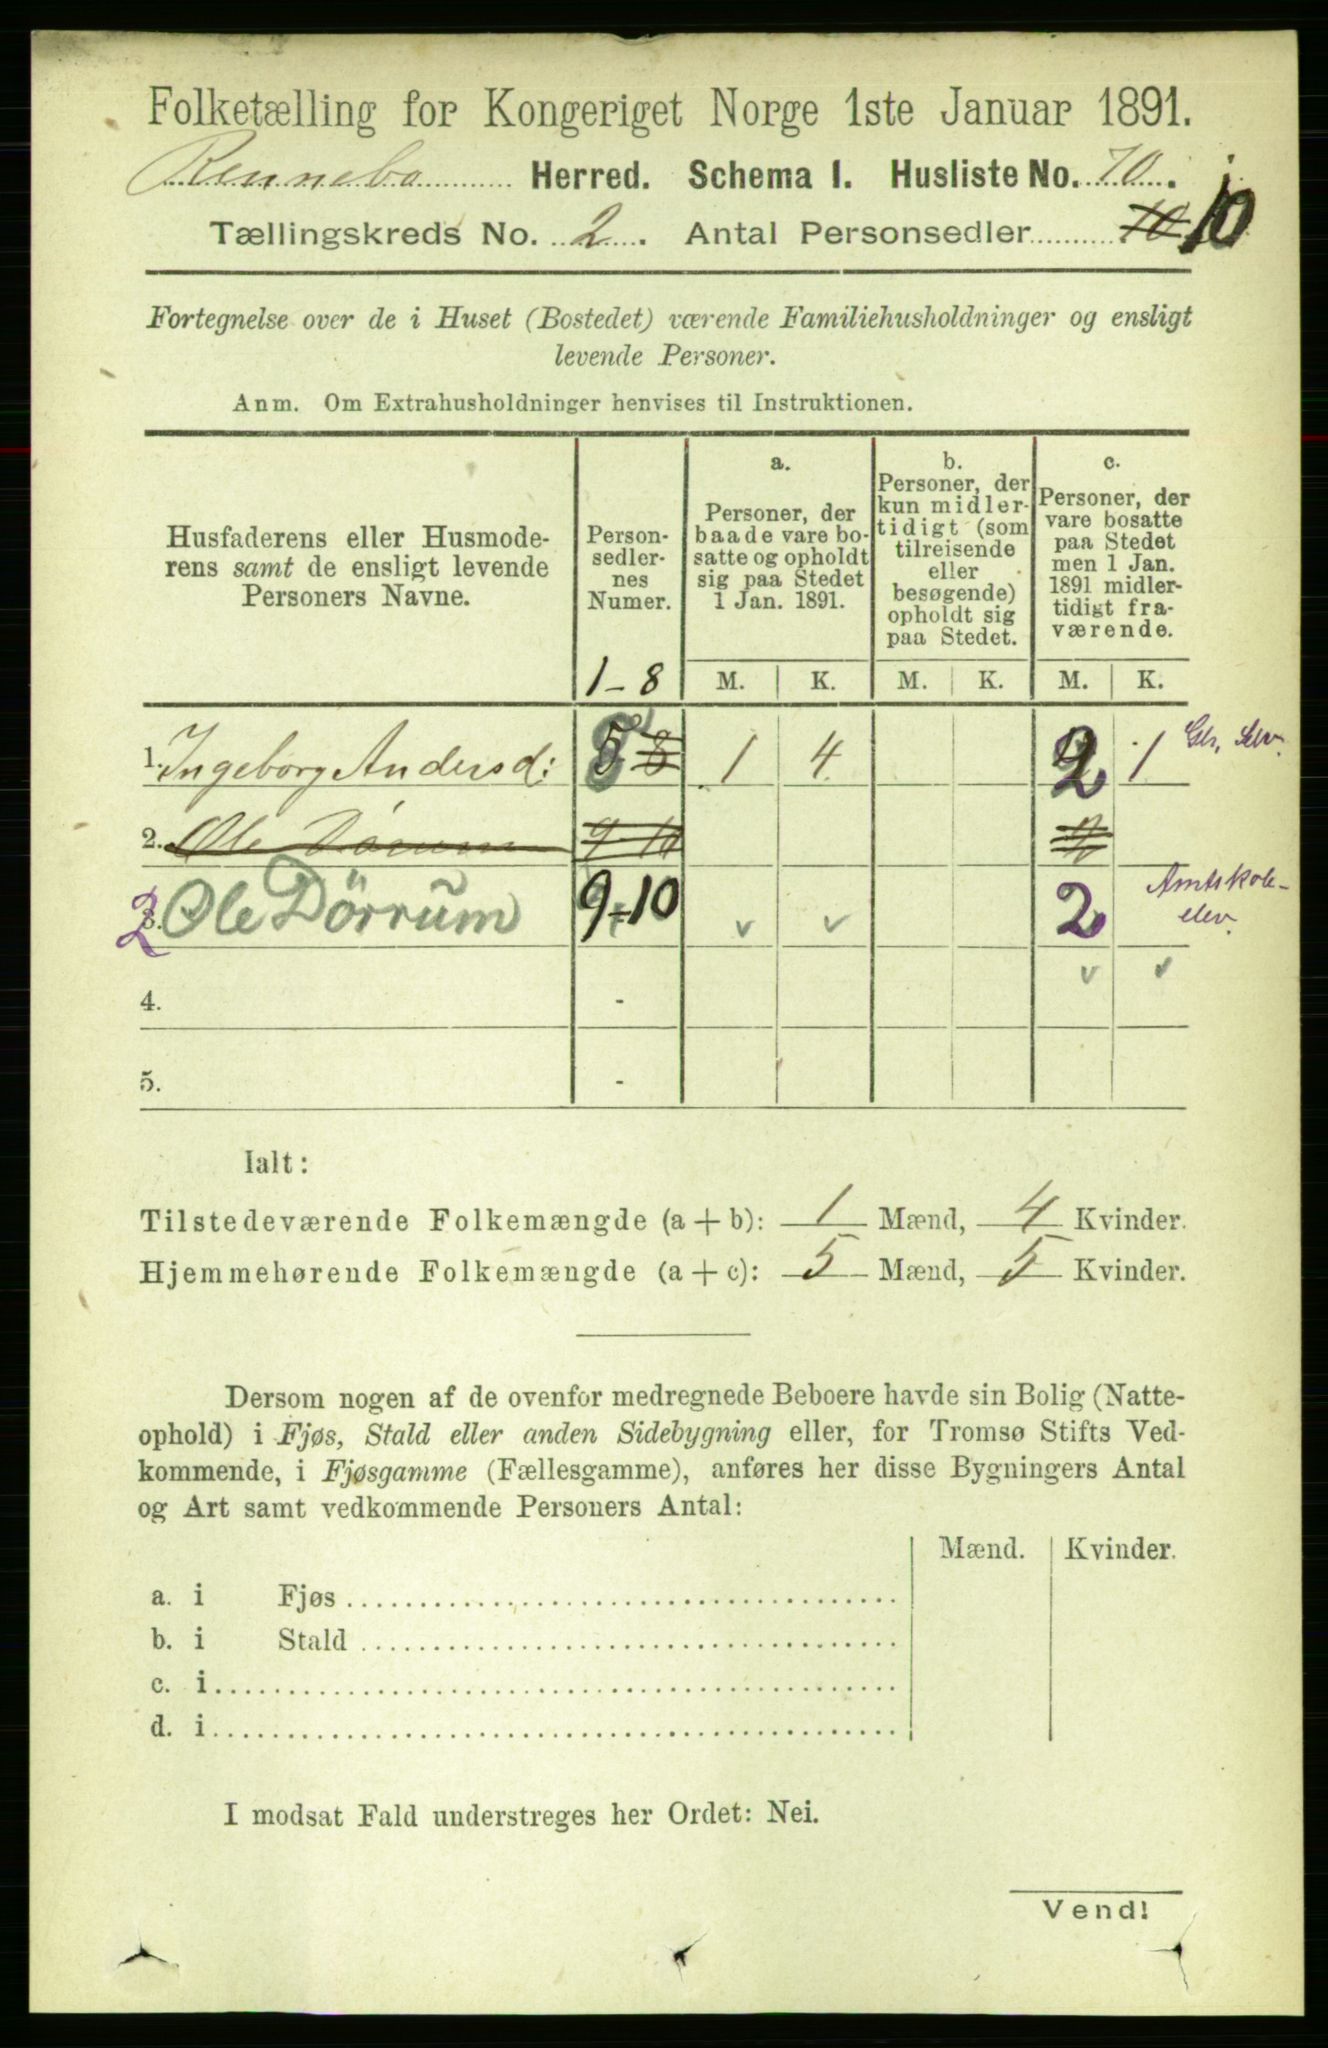 Folketælling for Kongeriget Norge 1ste Januar 1891.
Rennebo Herred. Schema I. Husliste No. 70.
Tællingskreds No. 2. Antal Personsedler 10 10
Fortegnelse over de i Huset (Bostedet) værende Familiehusholdninger og ensligt
levende Personer.
Anm. Om Extrahusholdninger henvises til Instruktionen.
Husfaderens eller Husmode-
rens samt de ensligt levende
Personers Navne.
Person-
sedler-
nes
Numer.
1-8
a.
Personer, der
baade vare bo-
satte og opholdt
sig paa Stedet
1 Jan. 1891.
b.
Personer, der
kun midler-
tidigt (som
tilreisende
eller
besøgende)
opholdt sig
paa Stedet.
c.
Personer, der
vare bosatte
paa Stedet
men 1 Jan.
1891 midler-
tidigt fra-
værende.
M. K. M. K. M. K.
1. Ingeborg Andersd: 8 1 4 2 1
2. Ole Dörrum 9-10
2 3. Ole Dörrum 9-10 v v 2 Amtskole-
elev.
v v
4. -
5. -
Ialt:
Tilstedeværende Folkemængde (a + b): 1 Mænd, 4 Kvinder.
Hjemmehørende Folkemængde (a + c): 5 Mænd, 5 Kvinder.
Dersom nogen af de ovenfor medregnede Beboere havde sin Bolig (Natte-
ophold) i Fjøs, Stald eller anden Sidebygning eller, for Tromsø Stifts Ved-
kommende, i Fjøsgamme (Fællesgamme), anføres her disse Bygningers Antal
og Art samt vedkommende Personers Antal:
Mænd. Kvinder.
a. i Fjøs
b. i Stald
c. i
d. i
I modsat Fald understreges her Ordet: Nei.
Vend!